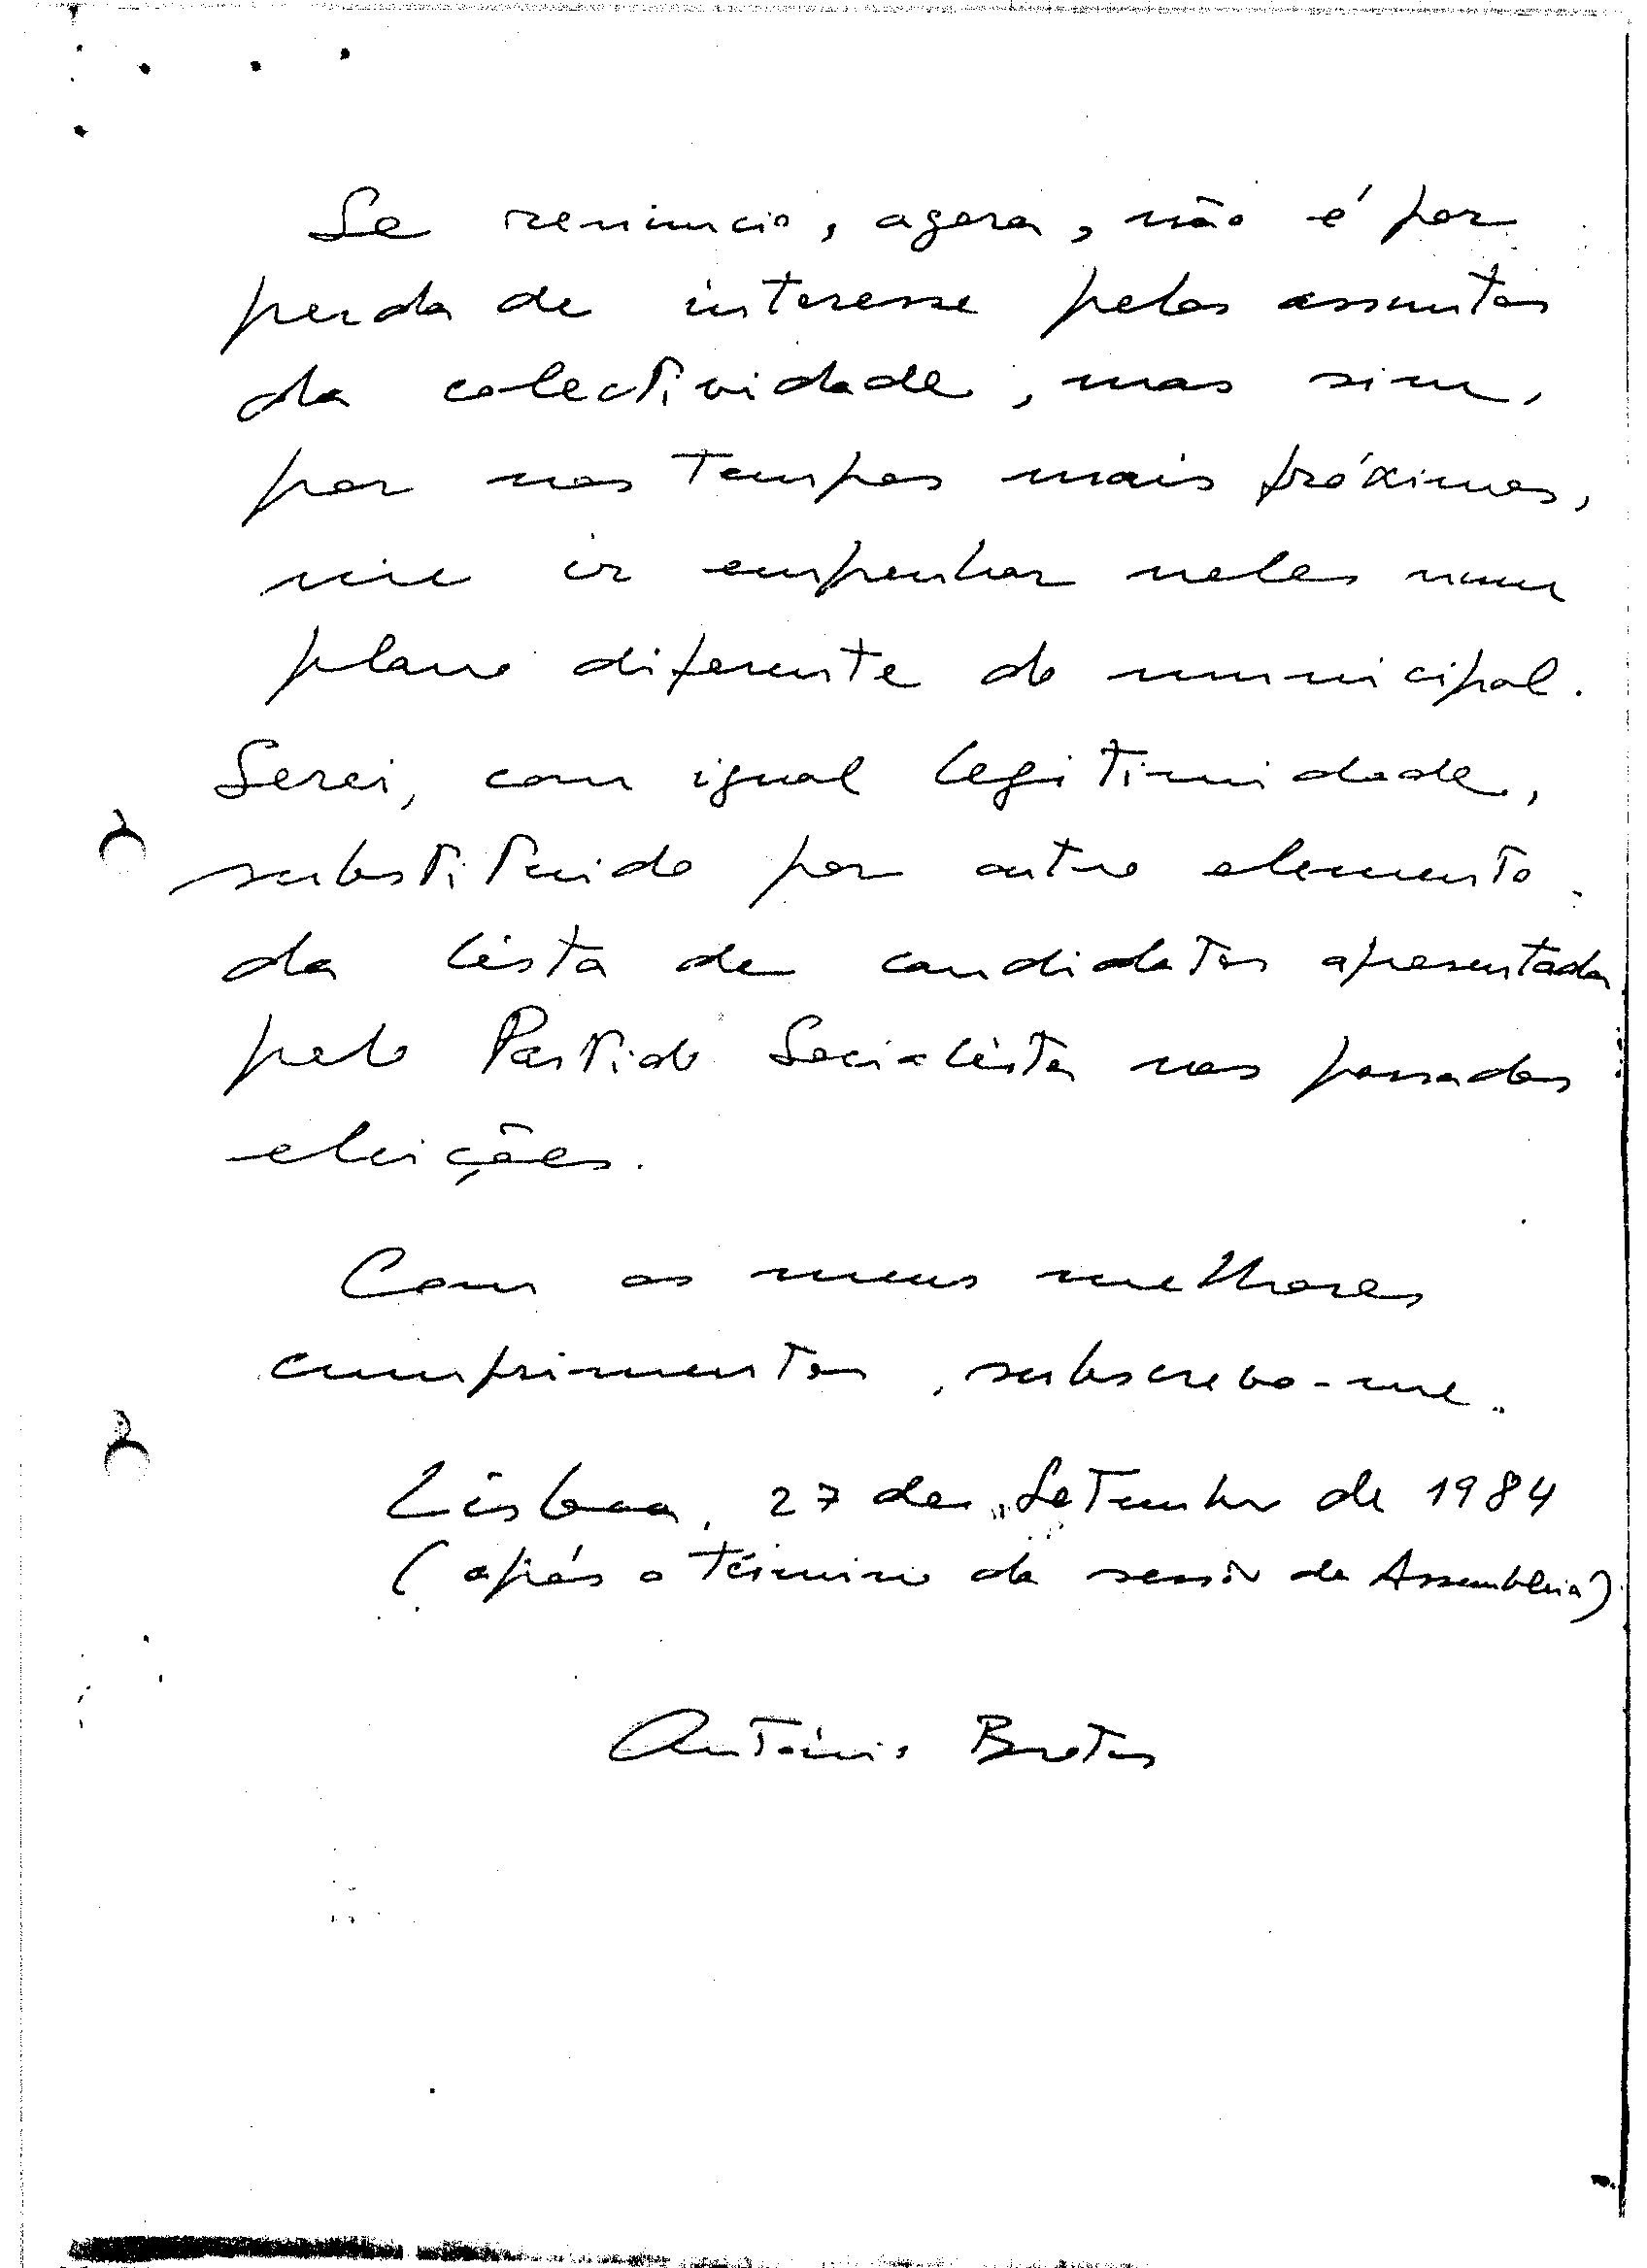 Se renuncio, agora, não é por
perda de interesse pelos assuntos
da colectividade, mas sim,
por nos tempos mais próximos,
me ir empenhar neles num
plano diferente do municipal.
Serei, com igual legitimidade,
substituido por outro elemento
da lista de candidatos apresentada
pelo Partido Socialista nas passadas
eleições.
Com os meus melhores
cumprimentos, subscrevo-me.
Lisboa, 27 de Setembro de 1984
(após o término da sessão da Assembleia)
António Brotas